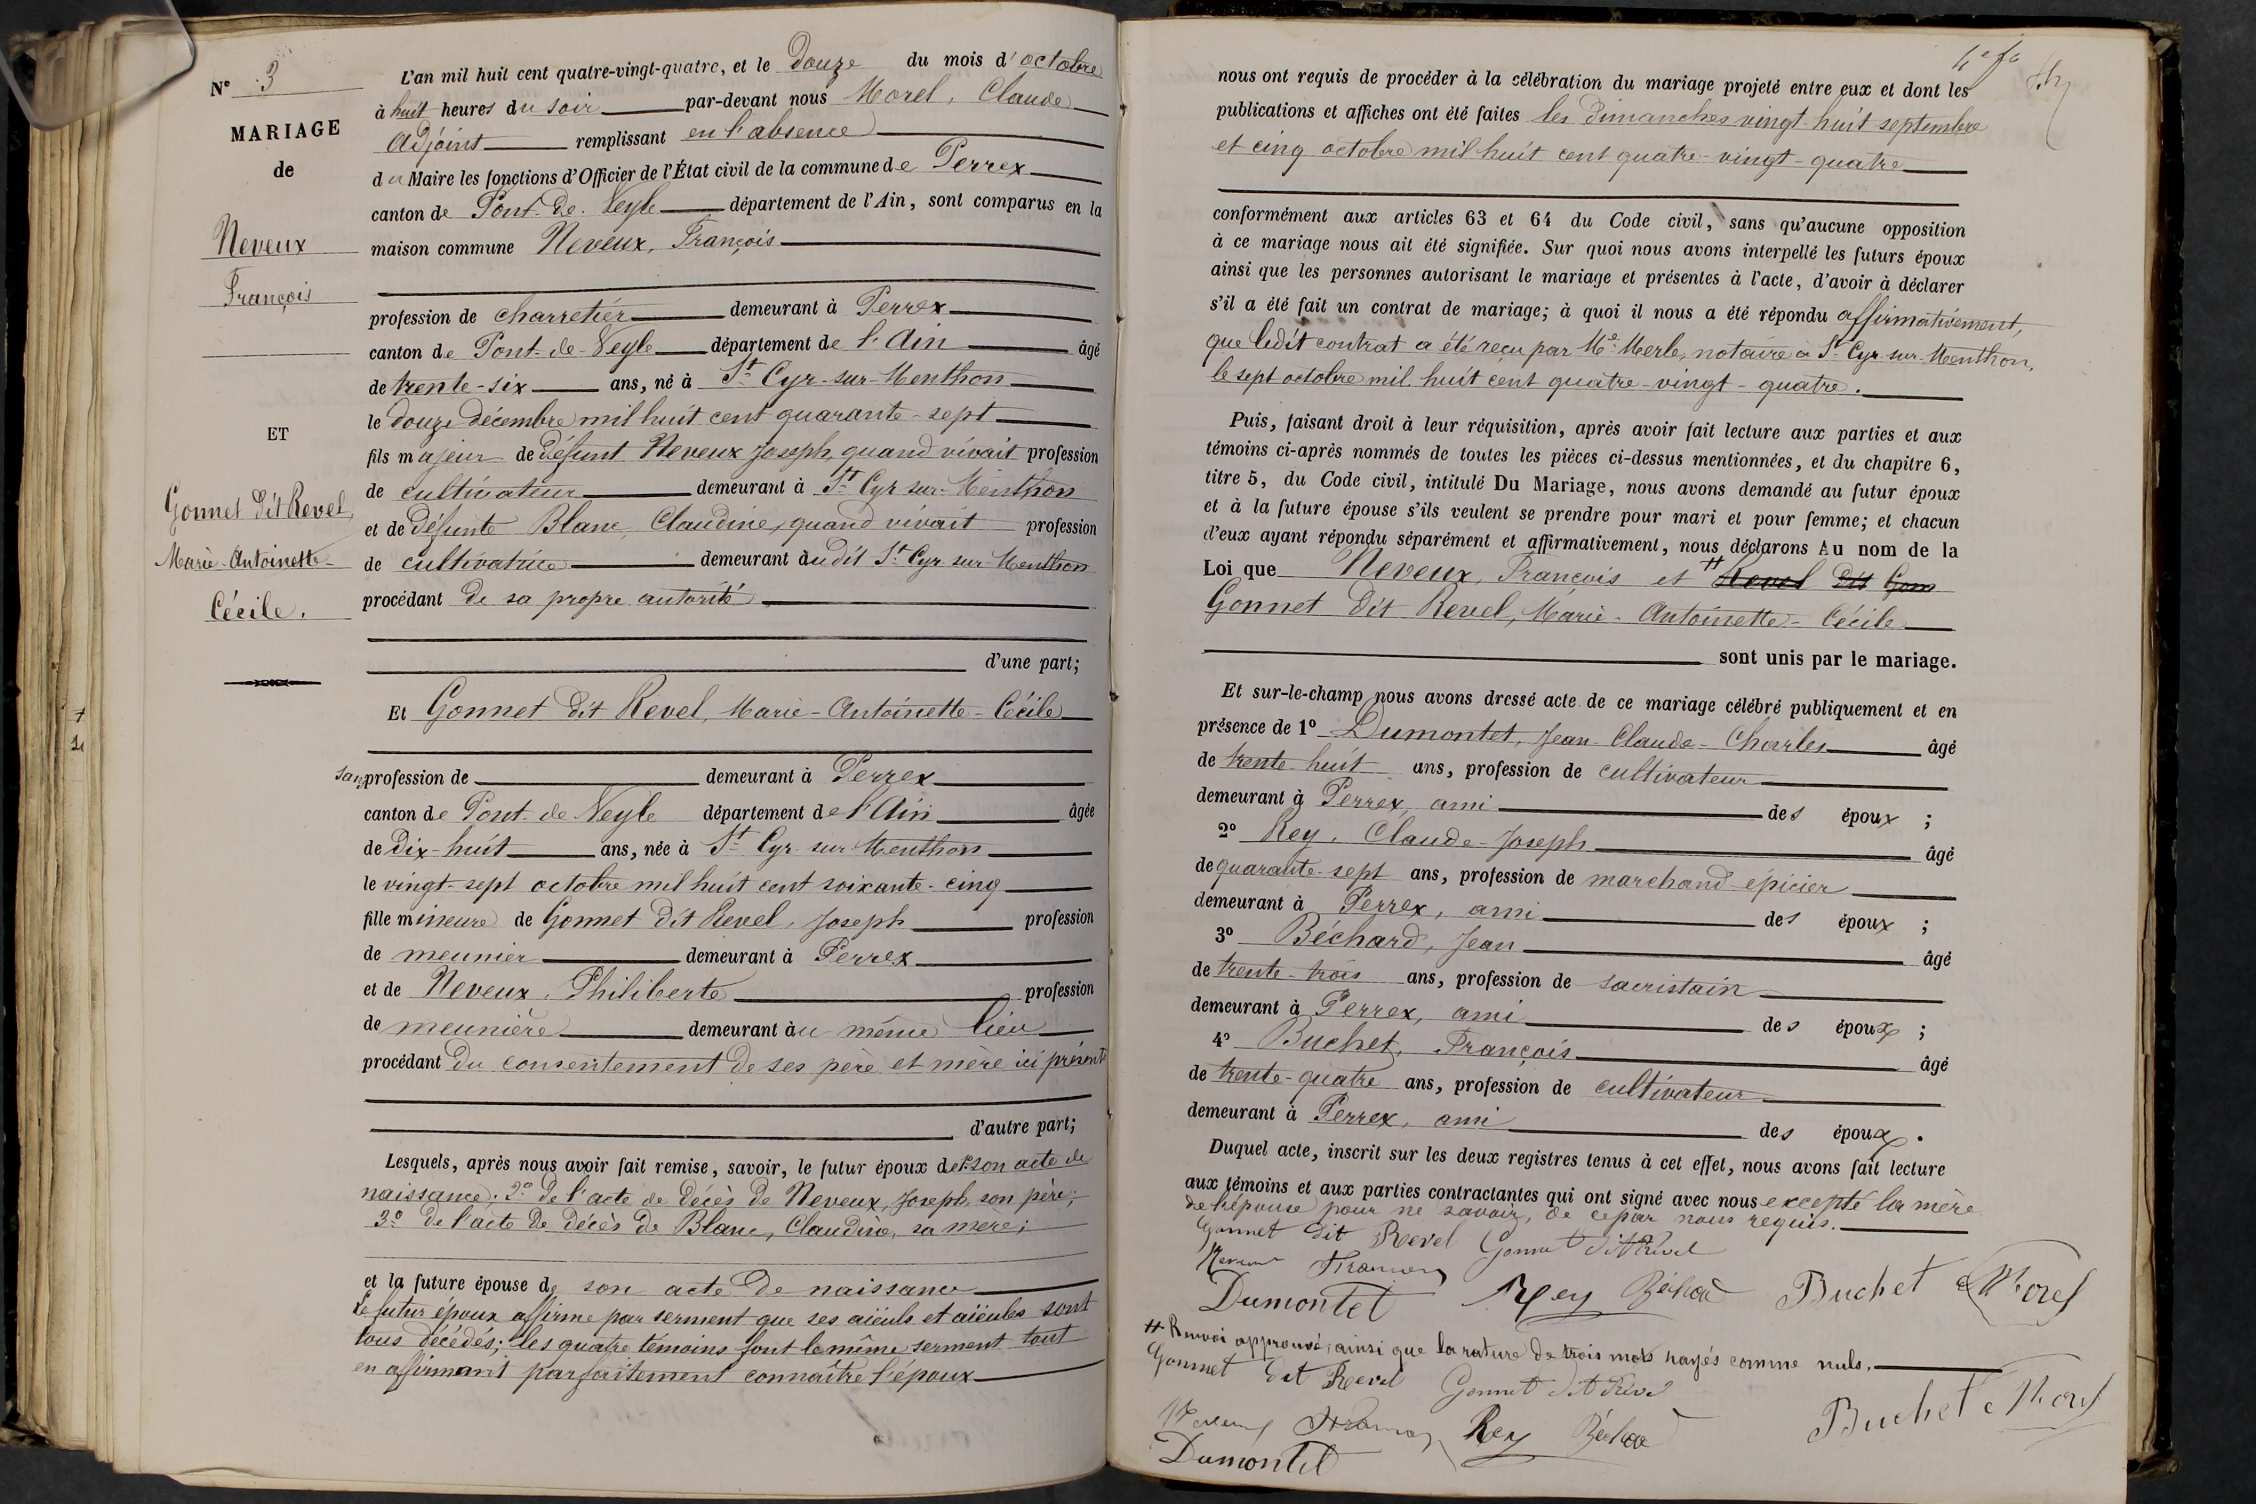 N° 3
MARIAGE
de
Neveux
François
ET
Gonnet dit Revel
Marie-Antoinette-
Cécile.
L'an mil huit cent quatre-vingt-quatre, et le douze du mois d'octobre
à huit heures du soir par-devant nous Morel, Claude
Adjoint remplissant en l'absence
du Maire les fonctions d'Officier de l'État civil de la commune de Perrex
canton de Pont-de-Veyle département de l'Ain, sont comparus en la
maison commune Neveux, François
profession de charretier demeurant à Perrex
canton de Pont-de-Veyle département de l'Ain âgé
de trente-six ans, né à St Cyr-sur-Menthon
le douze décembre mil huit cent quarante-sept
fils majeur de défunt Neveux Joseph, quand vivait profession
de cultivateur demeurant à St Cyr-sur-Menthon
et de défunte Blanc, Claudine, quand vivait profession
de cultivatrice demeurant audit St Cyr sur Menthon
procédant de sa propre autorité
d'une part;
Et Gonnet dit Revel, Marie-Antoinette-Cécile
sans profession de demeurant à Perrex
canton de Pont-de-Veyle département de l'Ain âgée
de dix-huit ans, née à St Cyr sur Menthon
le vingt-sept octobre mil huit cent soixante-cinq
fille mineure de Gonnet dit Revel, Joseph profession
de meunier demeurant à Perrex
et de Neveux, Philiberte profession
de meunière demeurant au même lieu
procédant du consentement de ses père et mère ici présents
d'autre part;
Lesquels, après nous avoir fait remise, savoir, le futur époux de 1° son acte de
naissance; 2° de l'acte de décès de Neveux, Joseph, son père;
3° de l'acte de décès de Blanc, Claudine, sa mère;
et la future épouse de son acte de naissance
Le futur époux affirme par serment que ses aïeuls et aïeules sont
tous décédés; les quatre témoins font le même serment tout
en affirmant parfaitement connaître l'époux
nous ont requis de procéder à la célébration du mariage projeté entre eux et dont les
publications et affiches ont été faites les dimanches vingt-huit septembre
et cinq octobre mil huit cent quatre-vingt-quatre
conformément aux articles 63 et 64 du Code civil, sans qu'aucune opposition
à ce mariage nous ait été signifiée. Sur quoi nous avons interpellé les futurs époux
ainsi que les personnes autorisant le mariage et présentes à l'acte, d'avoir à déclarer
s'il a été fait un contrat de mariage; à quoi il nous a été répondu affirmativement,
que ledit contrat a été reçu par Me Merle, notaire à St Cyr-sur-Menthon,
le sept octobre mil huit cent quatre-vingt-quatre.
Puis, faisant droit à leur réquisition, après avoir fait lecture aux parties et aux
témoins ci-après nommés de toutes les pièces ci-dessus mentionnées, et du chapitre 6,
titre 5, du Code civil, intitulé Du Mariage, nous avons demandé au futur époux
et à la future épouse s'ils veulent se prendre pour mari et pour femme; et chacun
d'eux ayant répondu séparément et affirmativement, nous déclarons Au nom de la
Loi que Neveux, François et # Revel dit Gonn
Gonnet dit Revel, Marie-Antoinette-Cécile
sont unis par le mariage.
Et sur-le-champ nous avons dressé acte de ce mariage célébré publiquement et en
présence de 1° Dumontet, Jean-Claude-Charles âgé
de trente-huit ans, profession de cultivateur
demeurant à Perrex, ami des époux ;
2° Rey, Claude-Joseph âgé
de quarante-sept ans, profession de marchand épicier
demeurant à Perrex, ami des époux ;
3° Béchard, Jean âgé
de trente-trois ans, profession de sacristain
demeurant à Perrex, ami des époux ;
4° Buchet, François âgé
de trente-quatre ans, profession de cultivateur
demeurant à Perrex, ami des époux.
Duquel acte, inscrit sur les deux registres tenus à cet effet, nous avons fait lecture
aux témoins et aux parties contractantes qui ont signé avec nous excepté la mère
de l'épouse pour ne savoir, de ce par nous requis.
Gonnet dit Revel Gonnet dit Revel
Neveux François
Dumontet Rey Béchard Buchet C Morel
# Renvoi approuvé, ainsi que la rature de trois mots rayés comme nuls.
Gonnet dit Revel Gonnet dit Revel
Neveux François Rey Béchard Buchet C Morel
Dumontet